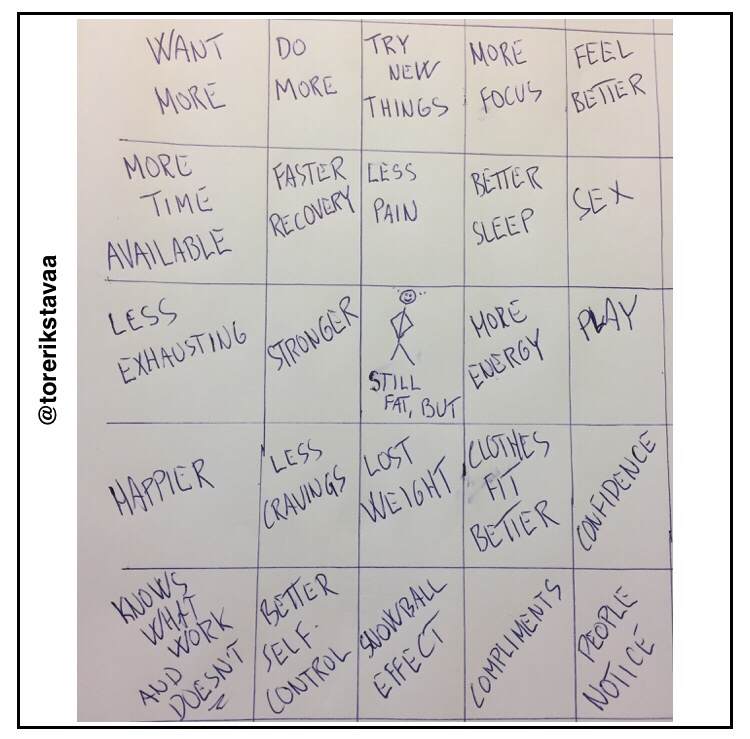 @torerikstavaa
WANT
MORE
DO
MORE
TRY
NEW
THINGS
MORE
FOCUS
FEEL
BETTER
MORE
TIME
AVAILABLE
FASTER
RECOVERY
LESS
PAIN
BETTER
SLEEP
SEX
LESS
EXHAUSTING
STRONGER
STILL
FAT, BUT
MORE
ENERGY
PLAY
HAPPIER
LESS
CRAVINGS
LOST
WEIGHT
CLOTHES
FIT
BETTER
CONFIDENCE
KNOWS
WHAT
WORK
AND
DOESN'T
BETTER
SELF-
CONTROL
SNOWBALL
EFFECT
COMPLIMENTS
PEOPLE
NOTICE